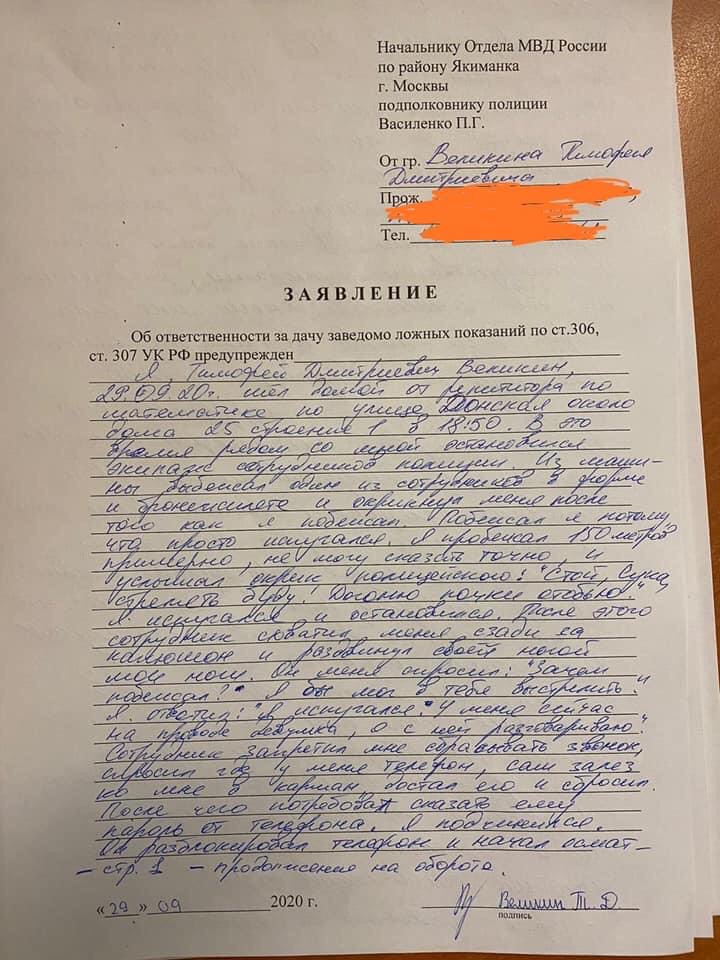 Начальнику Отдела МВД России
по району Якиманка
г. Москвы
подполковнику полиции
Василенко П.Г.
От гр. Великина Тимофея
Дмитриевича
Прож.
Тел.
ЗАЯВЛЕНИЕ
Об ответственности за дачу заведомо ложных показаний по ст.306,
ст. 307 УК РФ предупрежден
Я, Тимофей Дмитриевич Великин,
29.09.20г. шёл домой от репетитора по
математике по улице Донская около
дома 25 строение 1 в 18:50. В это
время рядом со мной остановился
экипаж сотрудников полиции. Из маши-
ны выбежал один из сотрудников в форме
и бронежилете и окрикнул меня после
того как я побежал. Побежал я потому,
что просто испугался. Я пробежал 150 метров
примерно, не могу сказать точно, и
услышал окрик полицейского: "Стой, Сука,
стрелять буду! Догоню почки отобью"
Я испугался и остановился. После этого
сотрудник схватил меня сзади за
капюшон и раздвинул своей ногой
мои ноги. Он меня спросил: "Зачем
побежал?" "Я бы мог в тебя выстрелить."
Я ответил: "Я испугался. У меня сейчас
на проводе девушка, я с ней разговариваю".
Сотрудник запретил мне сбрасывать звонок,
спросил где у меня телефон, сам залез
ко мне в карман, достал его и сбросил.
После чего потребовал сказать ему
пароль от телефона. Я подчинился.
Он разблокировал телефон и начал осмат-
- стр. 1 - продолжение на обороте.
«29» 09 2020 г. Великин Т. Д.
подпись